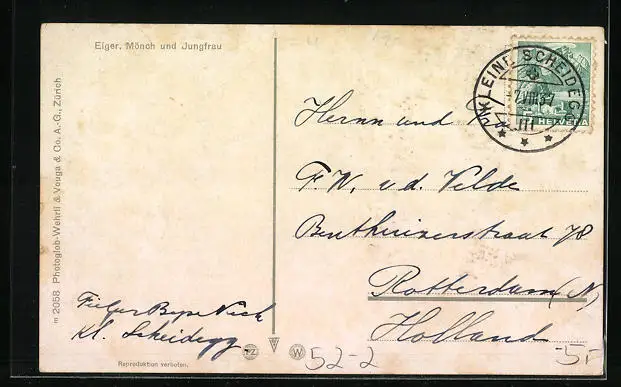 Eiger, Mönch und Jungfrau
m 2058 Photoglob-Wehrli & Vouga & Co. A.-G., Zürich
KLEINE SCHEIDEGG
VIII 37
HELVETIA
Herrn und
F. W. v. d. Velde
Benthuizerstraat 78
Rotterdam (N)
Holland
Kl. Scheidegg.
PZ
W
Reproduktion verboten.
52-2
5.-